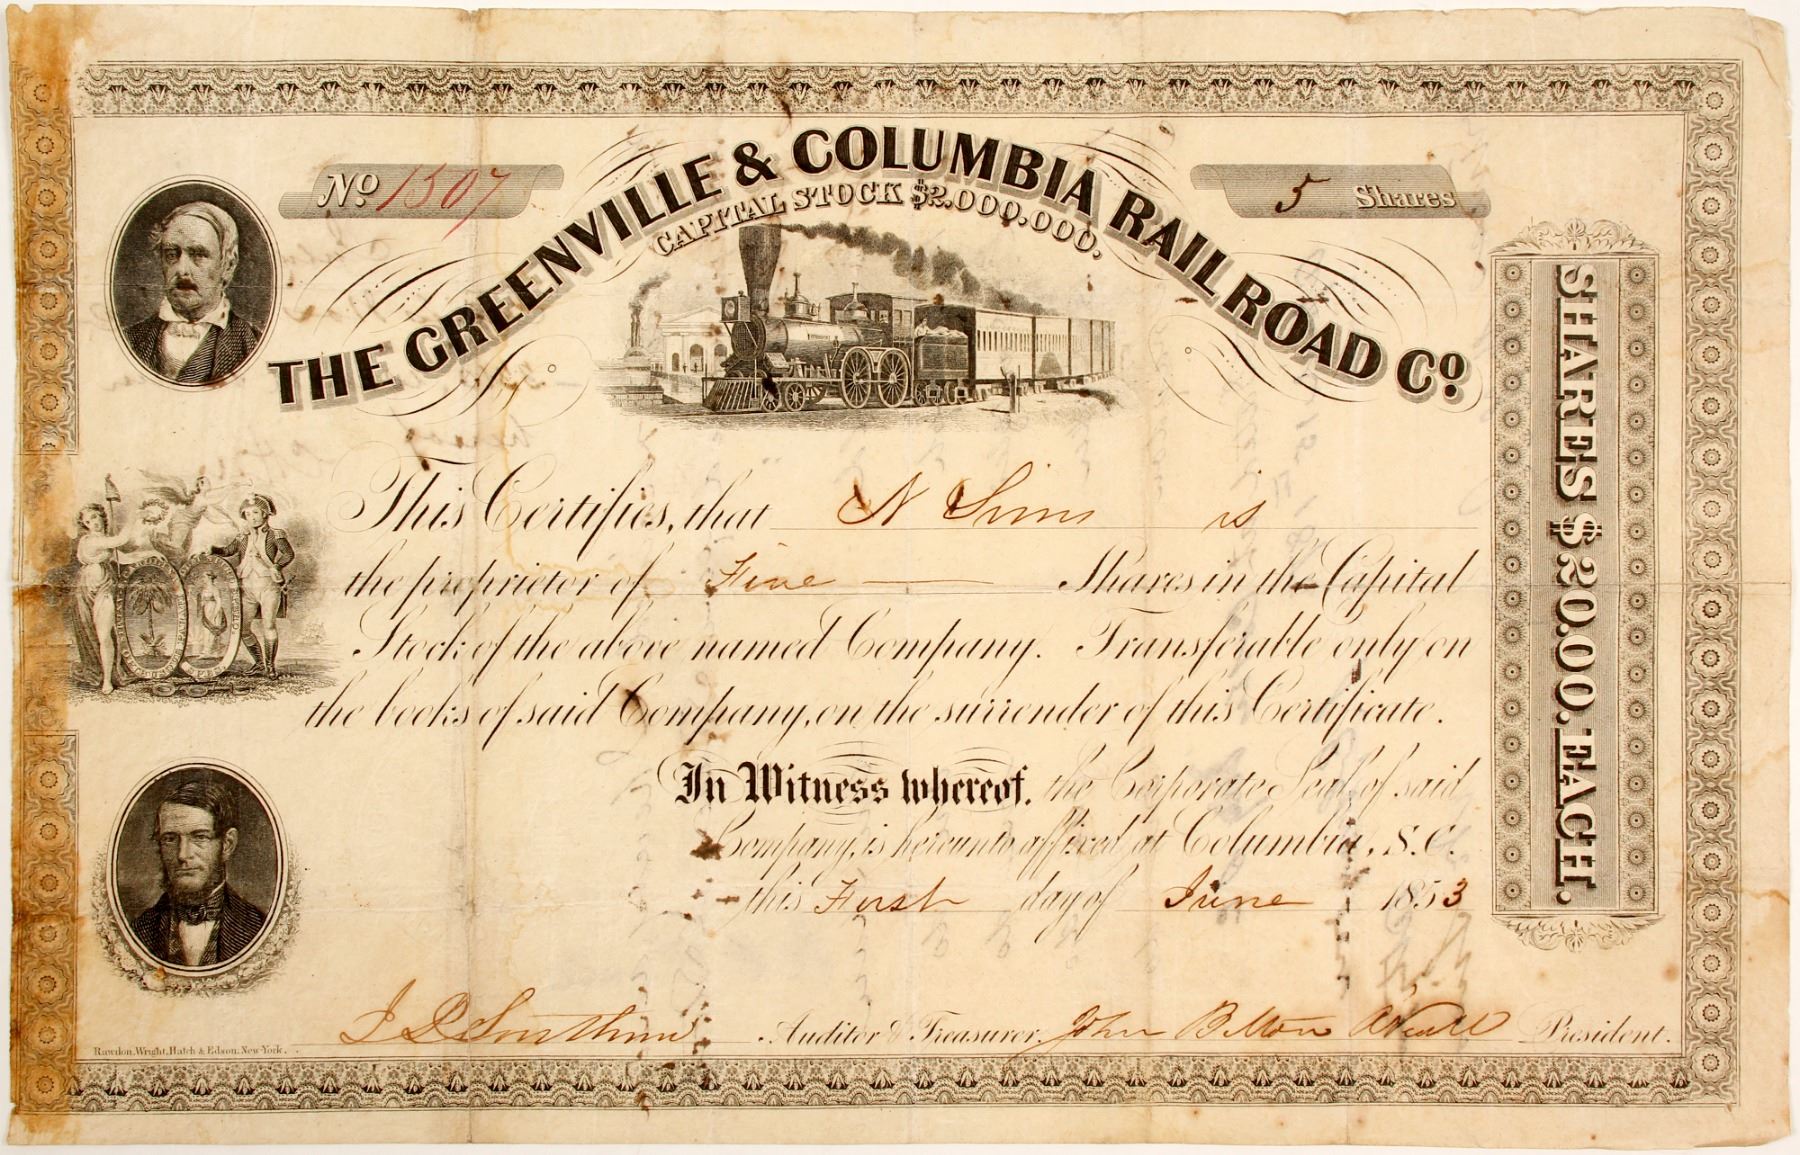 THE GREENVILLE & COLUMBIA RAIL ROAD Co.
CAPITAL STOCK $2.000.000.
No 1507
5 Shares
SHARES $20.00. EACH.
This Certifies, that N Sims is
the proprietor of Five Shares in the Capital
Stock of the above named Company. Transferable only on
the books of said Company, on the surrender of this Certificate.
In Witness whereof, the Corporate Seal, of said
Company, is hereunto affixed, at Columbia, S.C.
this First day of June 1853
Auditor & Treasurer. John Belton O'Neall President.
Rawdon, Wright, Hatch & Edson, New-York.